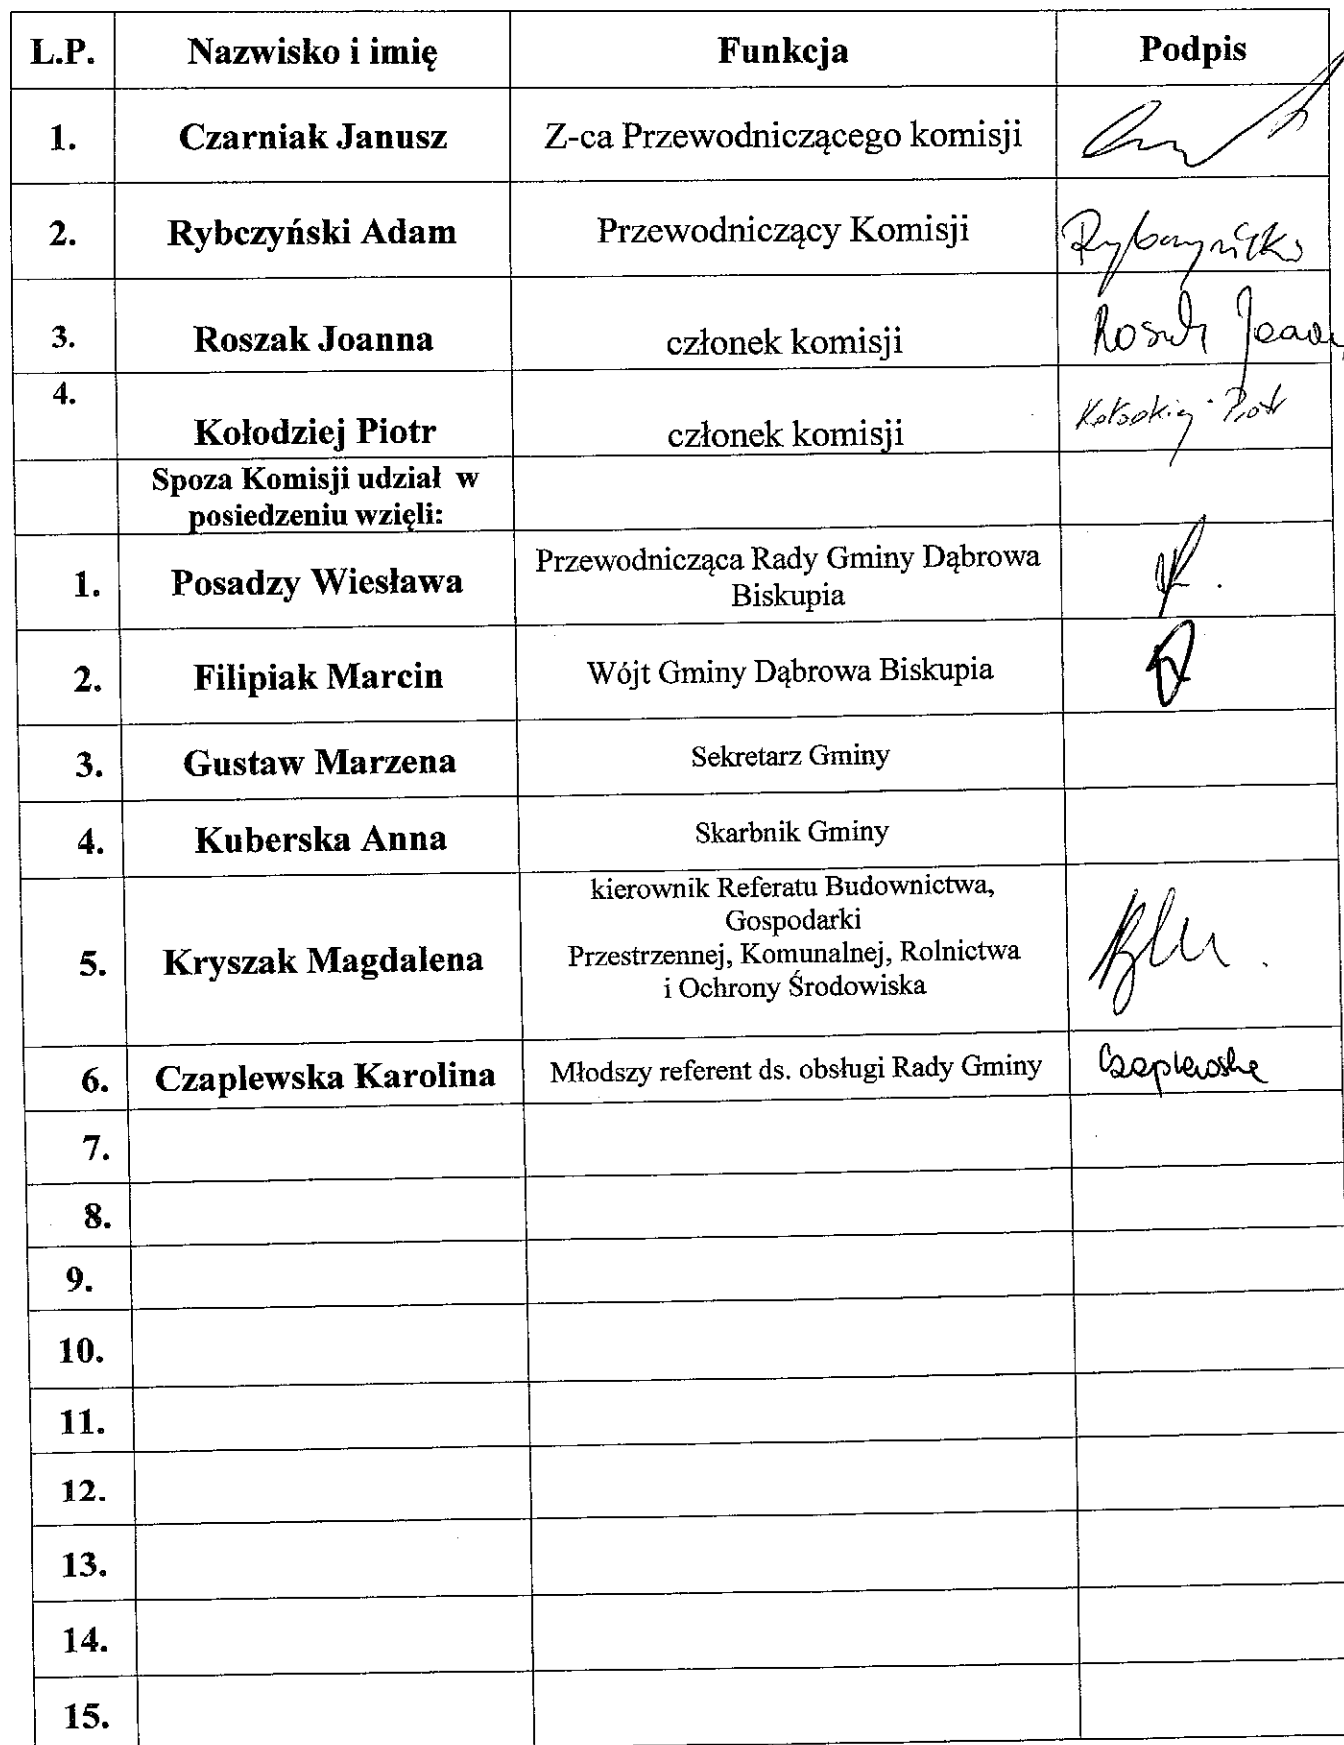 L.P. Nazwisko i imię Funkcja Podpis
1. Czarniak Janusz Z-ca Przewodniczącego komisji
2. Rybczyński Adam Przewodniczący Komisji Rybczyński
3. Roszak Joanna członek komisji
4.
Kołodziej Piotr członek komisji Kołodziej Piotr
Spoza Komisji udział w
posiedzeniu wzięli:
Przewodnicząca Rady Gminy Dąbrowa
1. Posadzy Wiesława
Biskupia
2. Filipiak Marcin Wójt Gminy Dąbrowa Biskupia
3. Gustaw Marzena Sekretarz Gminy
4. Kuberska Anna Skarbnik Gminy
kierownik Referatu Budownictwa,
Gospodarki
5. Kryszak Magdalena Przestrzennej, Komunalnej, Rolnictwa
i Ochrony Środowiska
6. Czaplewska Karolina Młodszy referent ds. obsługi Rady Gminy Czaplewska
7.
8.
9.
10.
11.
12.
13.
14.
15.